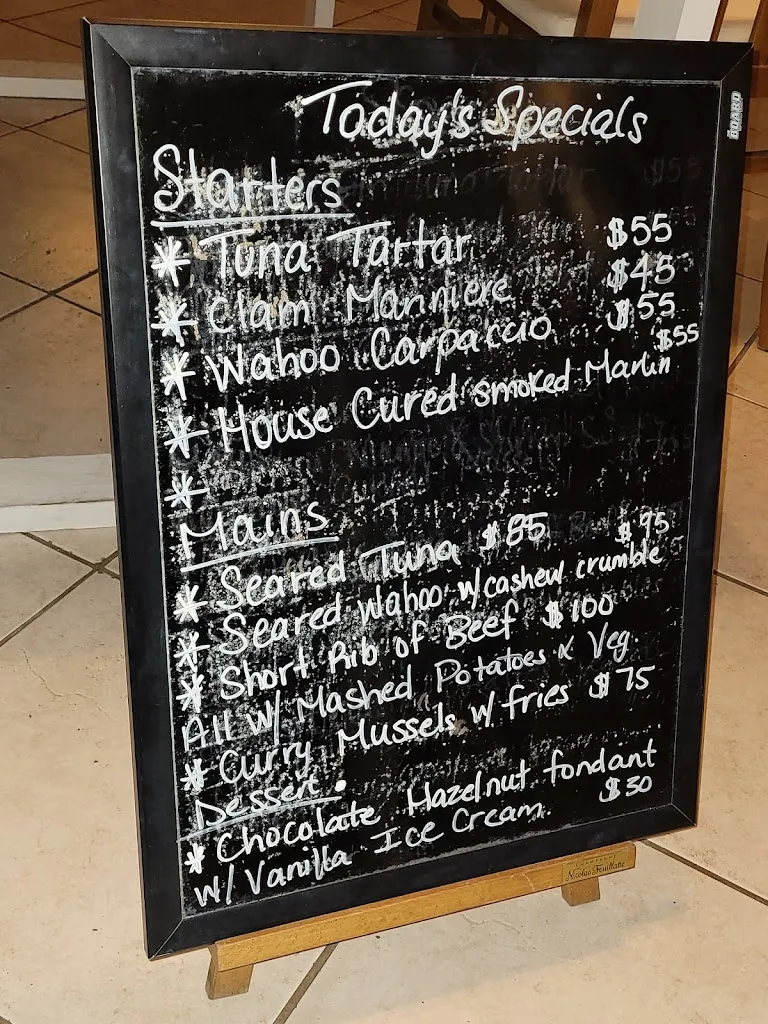 Today's Specials
Starters.
* Tuna Tartar $55
* Clam Manniere $45
* Wahoo Carpaccio $55
* House Cured smoked Marlin $55
*
Mains
* Seared Tuna $85
* Seared Wahoo w/cashew crumble $95
* Short Rib of Beef $100
All w/ Mashed Potatoes & Veg.
* Curry Mussels w/ fries $75
Dessert.
* Chocolate Hazelnut fondant
w/ Vanilla Ice Cream. $30
CHAMPAGNE
Nicolas Feuillatte
BOARD